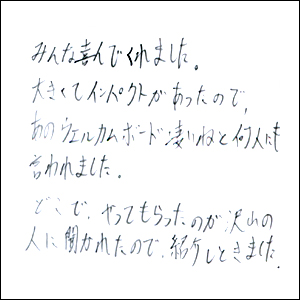 みんな喜んでくれました。
大きくてインパクトがあったので、
あのウェルカムボード凄いねと何人にも
言われました。
どこで、やってもらったのか沢山の
人に聞かれたので、紹介しときました。